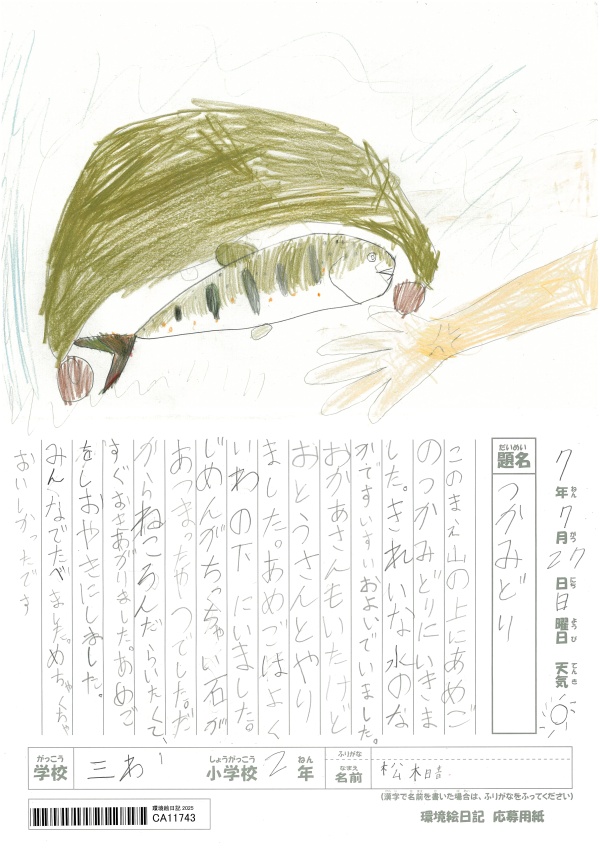 7年7月27日日曜日 天気
ねん がつ にち ようび てんき
だいめい
題名
つかみどり
このまえ山の上にあめご
のつかみどりにいきま
した。きれいな水のな
かですいすいおよいでいました。
おかあさんもいたけど
おとうさんとやり
ました。あめごはよく
いわの下にいました。
じめんがちっちゃい石が
あつまったやつでした。だ
からねころんだらいたくて、
すぐおきあがりました。あめご
をしおやきにしました。
みんなでたべました。めちゃくちゃ
おいしかったです
がっこう
学校
三わ
しょうがっこう
小学校
2
ねん
年
ふりがな
なまえ
名前
松木
(漢字で名前を書いた場合は、ふりがなをふってください)
環境絵日記 2025
CA11743
環境絵日記 応募用紙